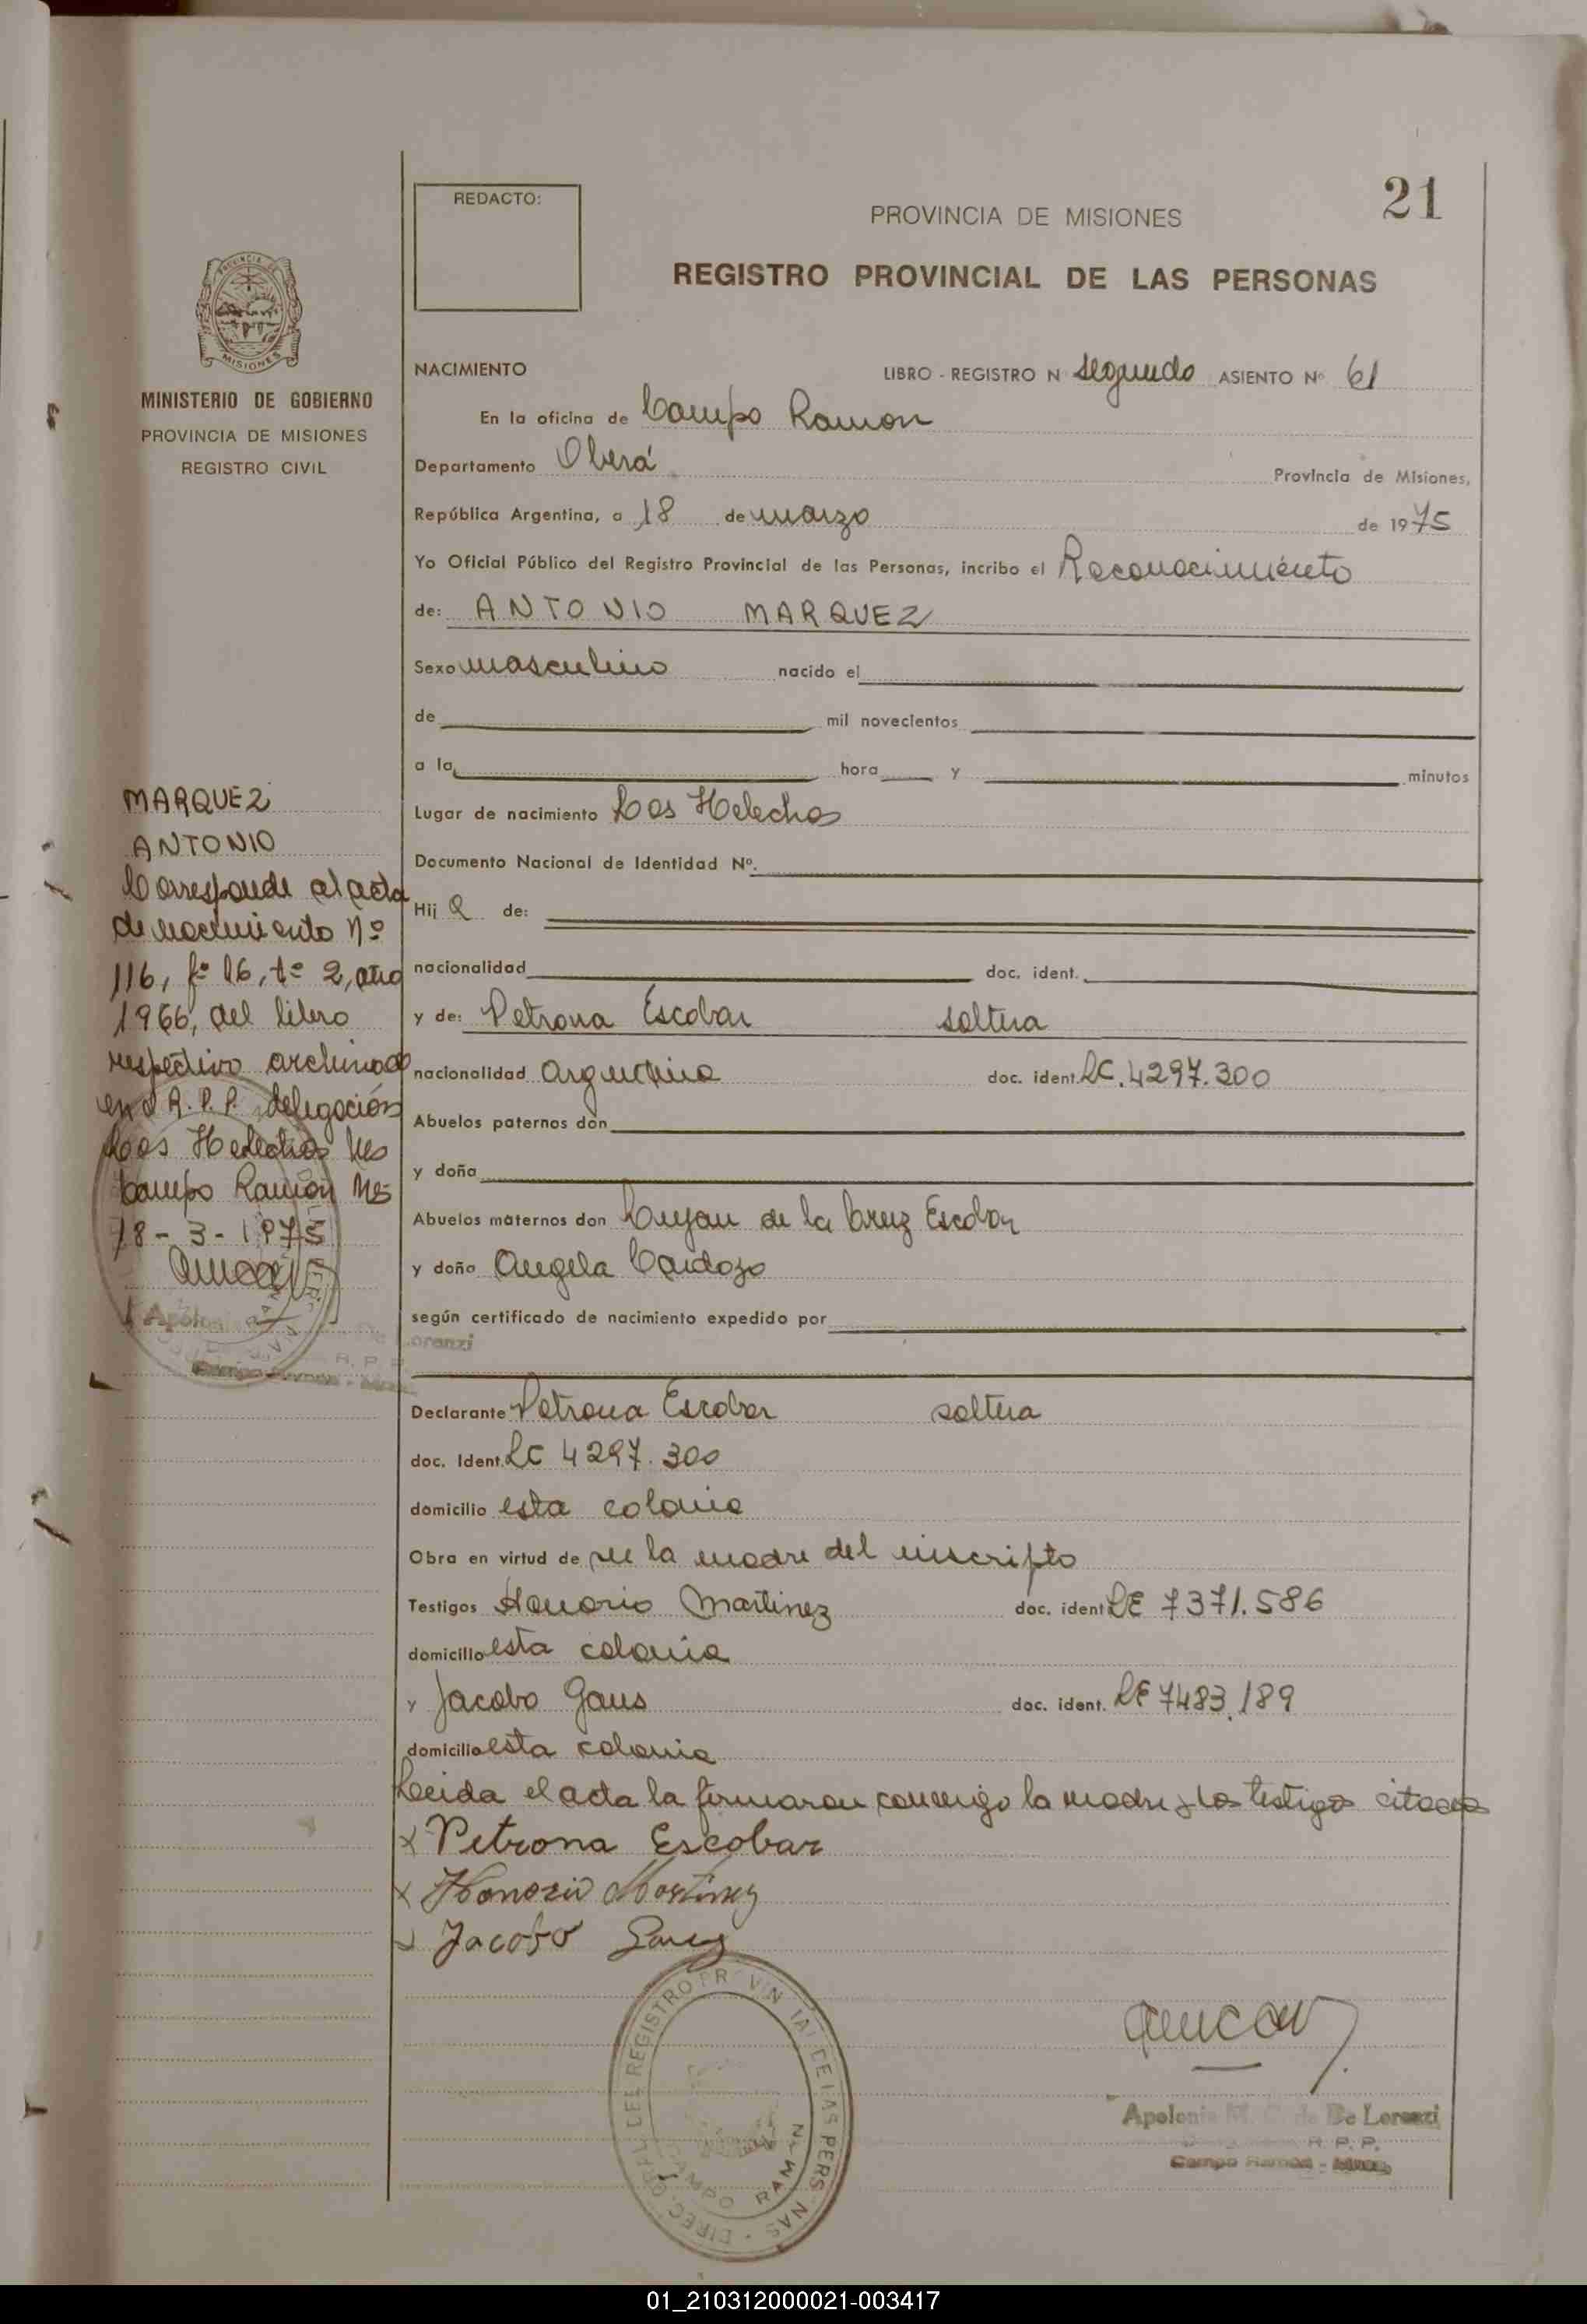 21
REDACTO:
PROVINCIA DE MISIONES
REGISTRO PROVINCIAL DE LAS PERSONAS
MISIONES
MINISTERIO DE GOBIERNO
PROVINCIA DE MISIONES
REGISTRO CIVIL
NACIMIENTO LIBRO - REGISTRO N segundo ASIENTO Nº 61
En la oficina de Campo Ramon
Departamento Oberá Provincia de Misiones,
República Argentina, a 18 de marzo de 1975
Yo Oficial Público del Registro Provincial de las Personas, incribo el Reconocimiento
de: ANTONIO MARQUEZ
Sexo masculino nacido el
de mil novecientos
a la hora y minutos
Lugar de nacimiento Los Helechos
Documento Nacional de Identidad Nº.
Hij o de:
nacionalidad doc. ident.
y de: Petrona Escobar soltera
nacionalidad argentina doc. ident. LC. 4297.300
Abuelos paternos don
y doña
Abuelos maternos don de la Cruz Escobar
y doña Angela Cardozo
según certificado de nacimiento expedido por
Declarante Petrona Escobar soltera
doc. Ident. LC 4297.300
domicilio esta colonia
Obra en virtud de ser la madre del inscripto
Testigos Honorio Martinez doc. ident LE 7371.586
domicilio esta colonia
y Jacobo Gaus doc. ident. LE 7483.189
domicilio esta colonia
Leida el acta la firmaron conmigo la madre y los testigos citados
x Petrona Escobar
x Honorio Martinez
x Jacobo
MARQUEZ
ANTONIO
Corresponde al acta
de nacimiento Nº
116, fº 16, tº 2, año
1966, del libro
respectivo archivado
en R.P.P. delegación
Los Helechos Mes
Campo Ramon Mes
18-3-1975
Lorenzi
Campo Ramon
DEL REGISTRO PROVINCIAL DE LAS PERSONAS
CAMPO RAMON
Apolonia M. C. de De Lorenzi
R. P. P.
Campo Ramon - Mnes.
01_210312000021-003417